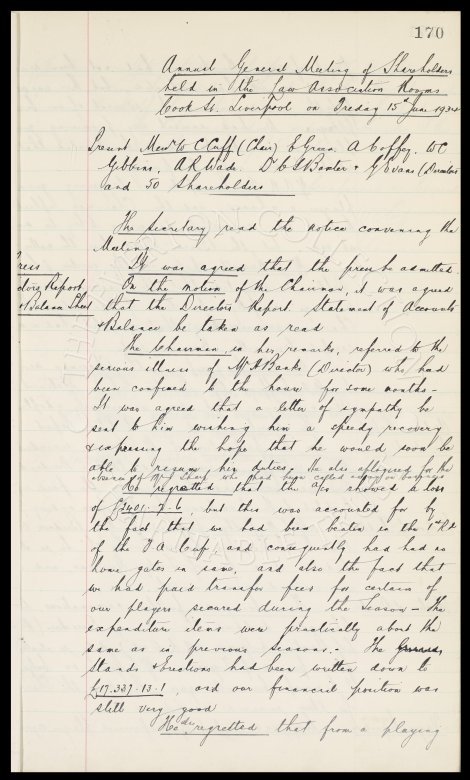 170
Annual General Meeting of Shareholders
held in the Law Association Rooms
Cook St. Liverpool on Friday 15th June 1934
Present Messrs W C Cuff (Chair) E Green A Coffey. W C
Gibbins. A R Wade. Dr C S Baxter & G Evans (Directors
and 50 Shareholders
The Secretary read the notice convening the
Meeting
Press It was agreed that the press be admitted
Directors Report On the motion of the Chairman, it was agreed
& Balance Sheet that the Directors Report. Statement of Accounts
& Balance be taken as read
The Chairman, in his remarks, referred to the
serious illness of Mr A Banks (Director) who had
been confined to the house for some months -
It was agreed that a letter of sympathy be
sent to him wishing him a speedy recovery
& expressing the hope that he would soon be
able to resume his duties. He also apologised for the
absence of Mr Sharp who had been called away on business
He regretted that the a/cs showed a loss
of £2401. 7. 6, but this was accounted for by
the fact that we had been beaten in the 1st Rd
of the F A Cup, and consequently had had no
home gates in same, and also the fact that
we had paid transfer fees for certain of
our players secured during the Season - The
expenditure items were practically about the
same as in previous seasons. - The
Stands & Erections had been written down to
£17.337.13.1, and our financial position was
still very good
He regretted that from a playing